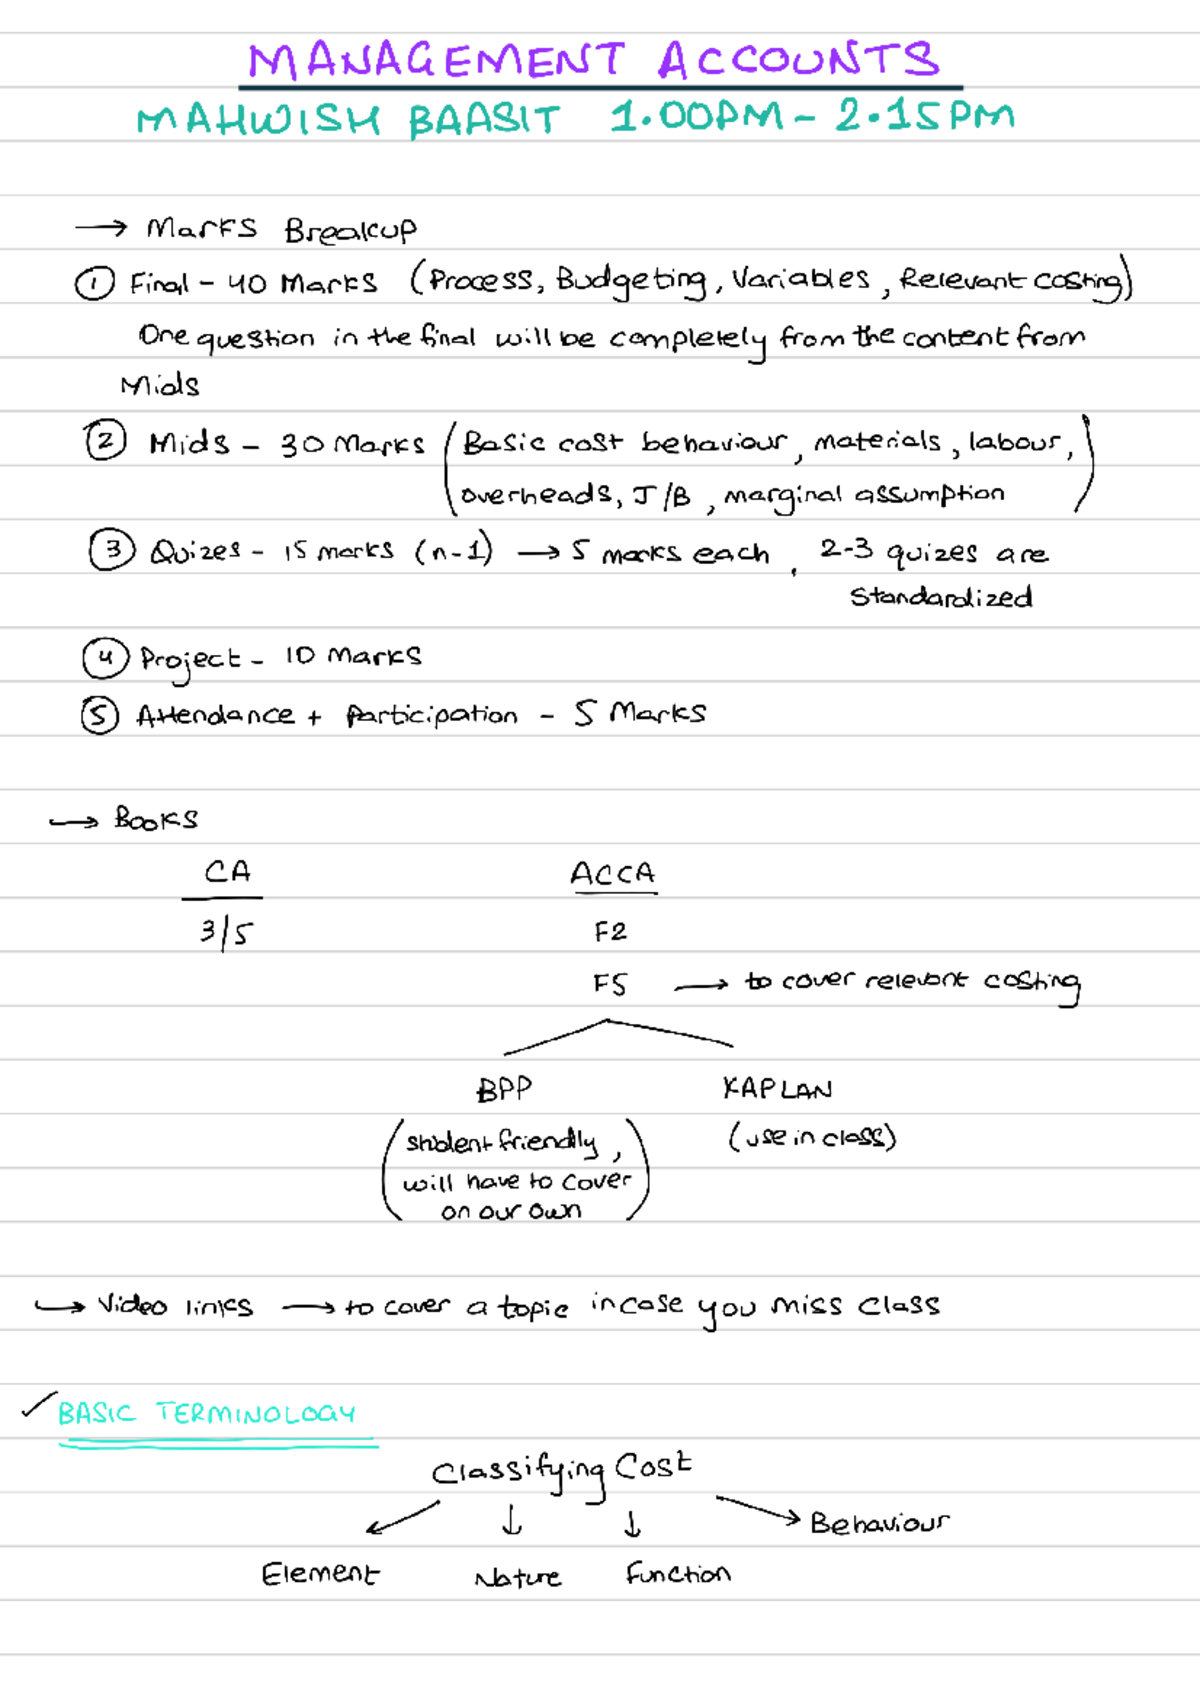 MANAGEMENT ACCOUNTS
MAHWISH BAASIT 1.00PM - 2.15PM
→ Marks Breakup
① Final - 40 Marks (Process, Budgeting, Variables, Relevant costing)
One question in the final will be completely from the content from
Mids
② Mids - 30 Marks (Basic cost behaviour, materials, labour,
overheads, J/B, marginal assumption)
③ Quizes - 15 marks (n-1) → 5 marks each, 2-3 quizes are
standardized
④ Project - 10 Marks
⑤ Attendance + Participation - 5 Marks
→ Books
CA ACCA
3/5 F2
F5 → to cover relevant costing
BPP KAPLAN
(student friendly, (use in class)
will have to cover
on our own)
→ Video links → to cover a topic incase you miss class
✓ BASIC TERMINOLOGY
Classifying Cost
↙ ↓ ↓ → Behaviour
Element Nature Function